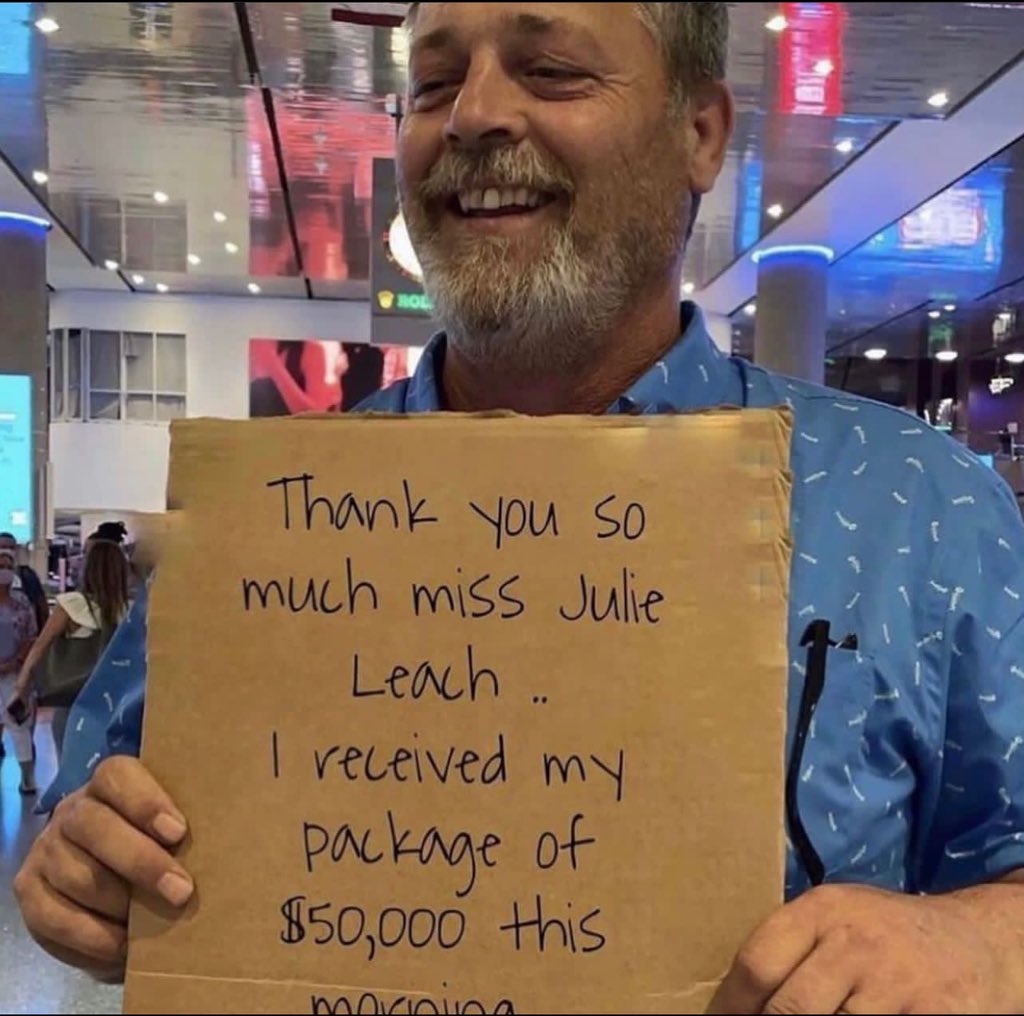 Thank you so
much miss Julie
Leach ..
I received my
package of
$50,000 this
morning